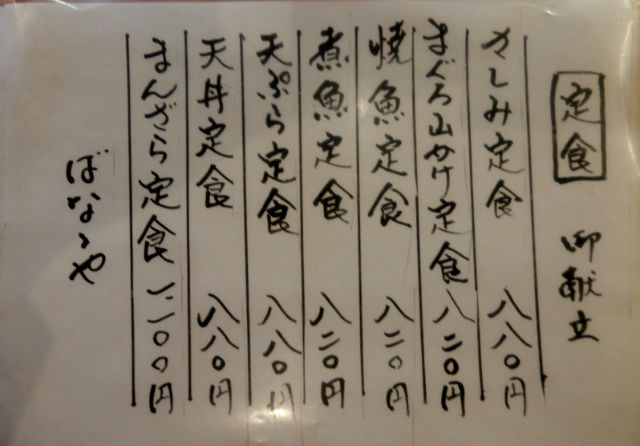 定食
御献立
さしみ定食 八八〇円
まぐろ山かけ定食 八二〇円
焼魚定食 八二〇円
煮魚定食 八二〇円
天ぷら定食 八八〇円
天丼定食 八八〇円
まんざら定食 一二〇〇円
ばなゝや